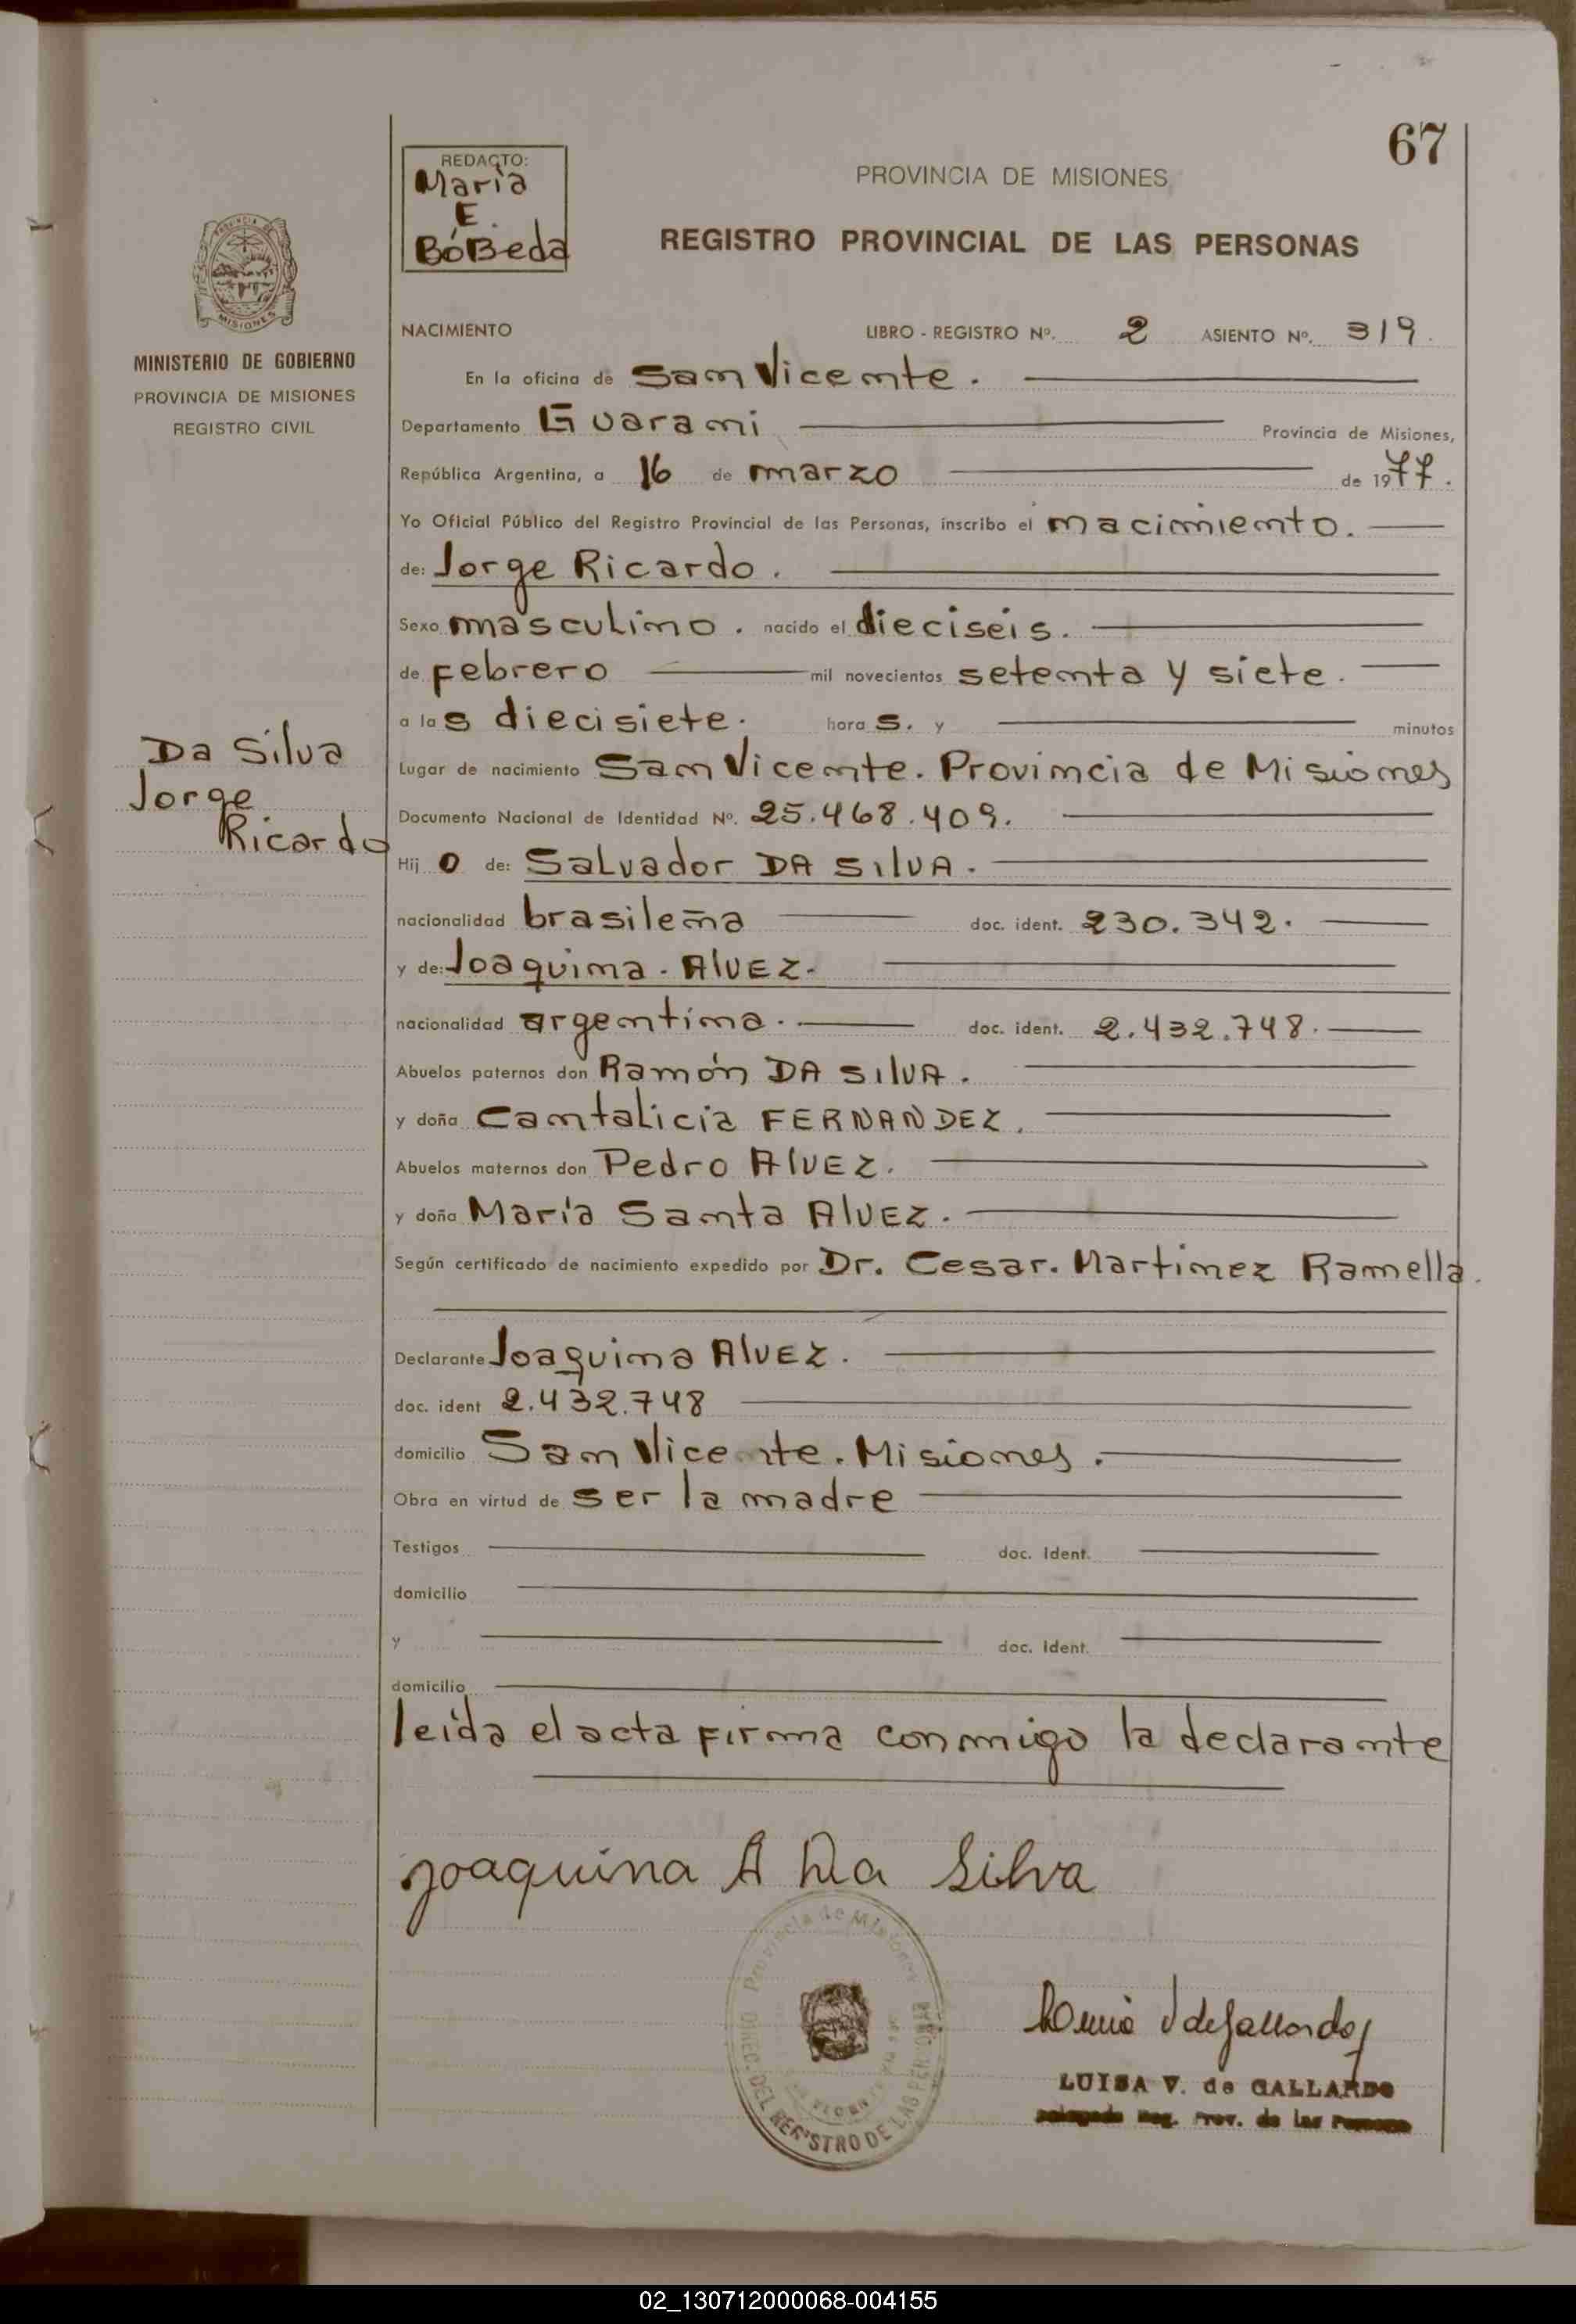 67
REDACTO:
María
E.
BóBeda
PROVINCIA DE MISIONES
REGISTRO PROVINCIAL DE LAS PERSONAS
PROVINCIA DE
MISIONES
MINISTERIO DE GOBIERNO
PROVINCIA DE MISIONES
REGISTRO CIVIL
NACIMIENTO LIBRO - REGISTRO Nº. 2 ASIENTO Nº. 319.
En la oficina de San Vicente.
Departamento Guarani Provincia de Misiones,
República Argentina, a 16 de marzo de 1977.
Yo Oficial Público del Registro Provincial de las Personas, inscribo el nacimiento.
de: Jorge Ricardo.
Sexo masculino. nacido el dieciseis.
de febrero mil novecientos setenta y siete.
a las diecisiete. horas. y minutos
Da Silva
Jorge
Ricardo
Lugar de nacimiento San Vicente. Provincia de Misiones
Documento Nacional de Identidad Nº. 25.468.409.
Hijo de: Salvador DA SILVA.
nacionalidad brasileña doc. ident. 230.342.
y de: Joaquina. AlVEZ.
nacionalidad argentina. doc. ident. 2.432.748.
Abuelos paternos don Ramón DA SILVA.
y doña Cantalicia FERNANDEZ.
Abuelos maternos don Pedro AlVEZ.
y doña María Santa AlVEZ.
Según certificado de nacimiento expedido por Dr. Cesar. Martinez Ramella.
Declarante Joaquina AlVEZ.
doc. ident 2.432.748
domicilio San Vicente. Misiones.
Obra en virtud de ser la madre
Testigos doc. Ident.
domicilio
y doc. Ident.
domicilio
leída el acta firma conmigo la declarante
Joaquina A Da Silva
Provincia de Misiones
DIREC. DEL REGISTRO DE LAS PER
LUISA V. de GALLARDO
Reg. Prov. de las
02_130712000068-004155